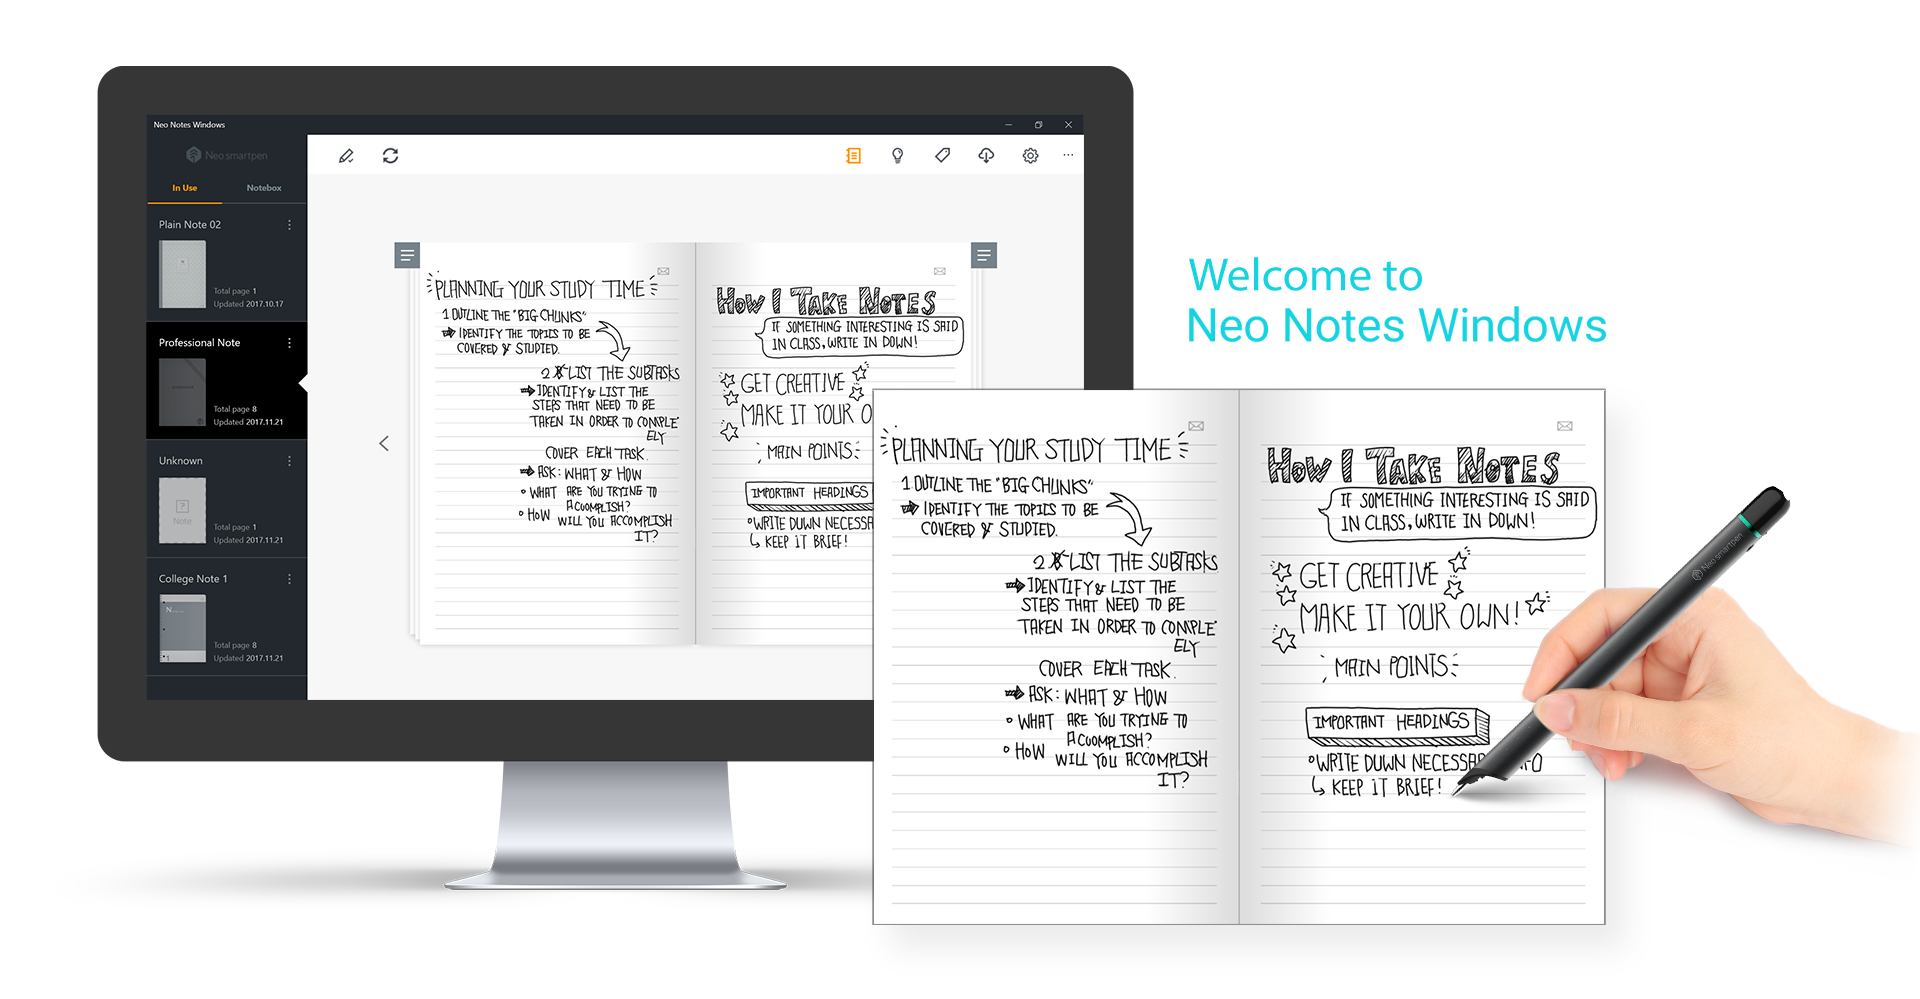 Neo Notes Windows
Neo smartpen
In Use
Notebox
Plain Note 02
Total page 1
Updated 2017.10.17
Professional Note
Total page 8
Updated 2017.11.21
Unknown
?
Note
Total page 1
Updated 2017.11.21
College Note 1
N
Total page 8
Updated 2017.11.21
PLANNING YOUR STUDY TIME
1 OUTLINE THE "BIG CHUNKS"
IDENTIFY THE TOPICS TO BE
COVERED & STUPIED.
2 LIST THE SUBTASKS
IDENTIFY & LIST THE
STEPS THAT NEED TO BE
TAKEN IN ORDER TO COMPLE
ELY
COVER EACH TASK.
ASK: WHAT & HOW
WHAT ARE YOU TRYING TO
ACUOMPLISH?
HOW WILL YOU ACCOMPLISH
IT?
HOW I TAKE NOTES
IF SOMETHING INTERESTING IS SAID
IN CLASS, WRITE IN DOWN!
GET CREATIVE
MAKE IT YOUR O
MAIN POINTS
IMPORTANT HEADINGS
WRITE DUWN NECESSA
KEEP IT BRIEF!
Welcome to
Neo Notes Windows
PLANNING YOUR STUDY TIME
1 OUTLINE THE "BIG CHUNKS"
IDENTIFY THE TOPICS TO BE
COVERED & STUPIED.
2 LIST THE SUBTASKS
IDENTIFY & LIST THE
STEPS THAT NEED TO BE
TAKEN IN ORDER TO COMPLE
ELY
COVER EACH TASK.
ASK: WHAT & HOW
WHAT ARE YOU TRYING TO
ACUOMPLISH?
HOW WILL YOU ACCOMPLISH
IT?
HOW I TAKE NOTES
IF SOMETHING INTERESTING IS SAID
IN CLASS, WRITE IN DOWN!
GET CREATIVE
MAKE IT YOUR OWN!
MAIN POINTS
IMPORTANT HEADINGS
WRITE DUWN NECESSA FO
KEEP IT BRIEF!
Neo smartpen